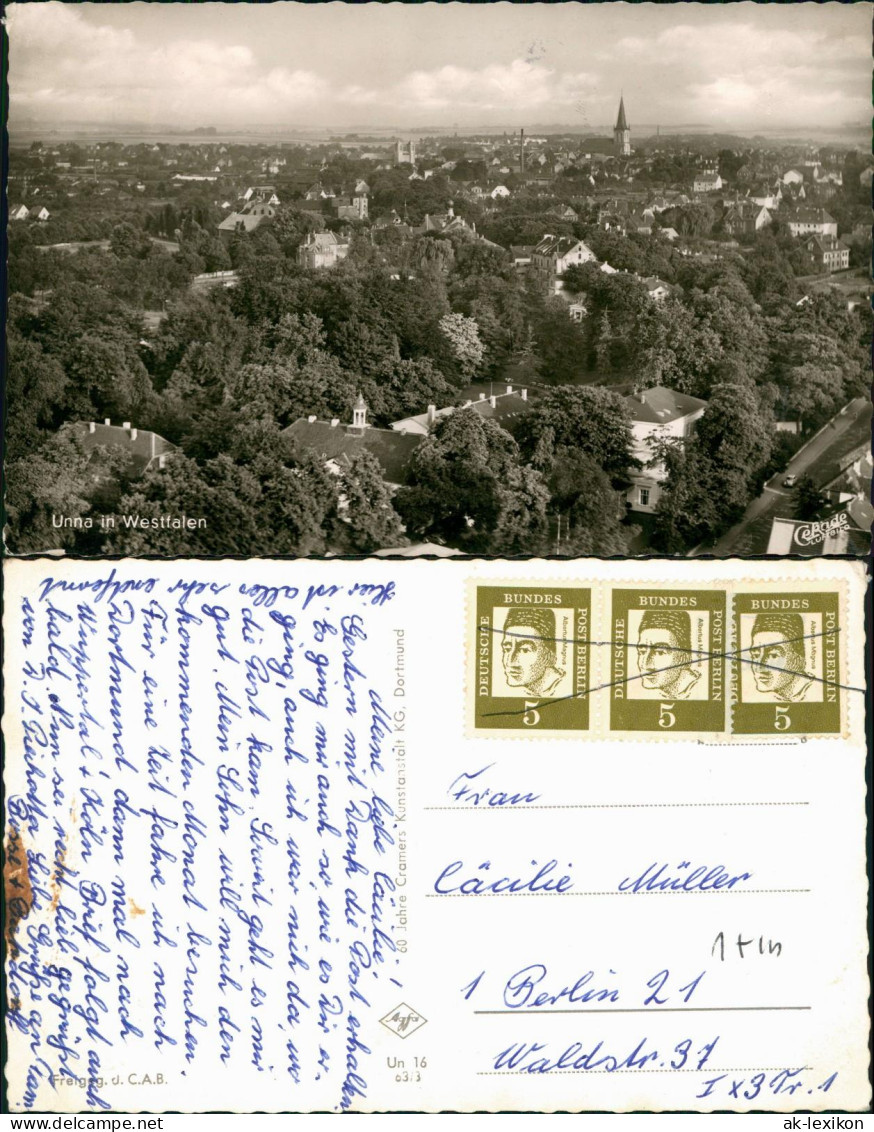 Unna in Westfalen
Cekade
Luftbild
Hier ist alles sehr entfernt
Meine liebe Cäcilie!
Gestern mit Dank die Post erhalten.
Es ging mir auch so, wie es Dir er-
ging, auch ich war nicht da, wo
die Post kam. Soweit geht es mir
gut. Mein Sohn will mich den
kommenden Monat besuchen.
Für eine Zeit fahre ich nach
Dortmund dann mal nach
Wuppertal + Köln. Brief folgt auch
bald. Nun sei recht viel gegrüßt
von D. Liebe Grüße an Fam.
60 Jahre Cramers Kunstanstalt KG, Dortmund
Agfa
Un 16
63/3
Freigeg. d. C.A.B.
DEUTSCHE BUNDES POST BERLIN
Albertus Magnus
5
DEUTSCHE BUNDES POST BERLIN
5
BUNDES POST BERLIN
Albertus Magnus
5
Frau
Cäcilie Müller
1 Berlin 21
Waldstr. 37
I x 3 Tr. 1
www.ansichtskarten-lexikon.de
ak-lexikon